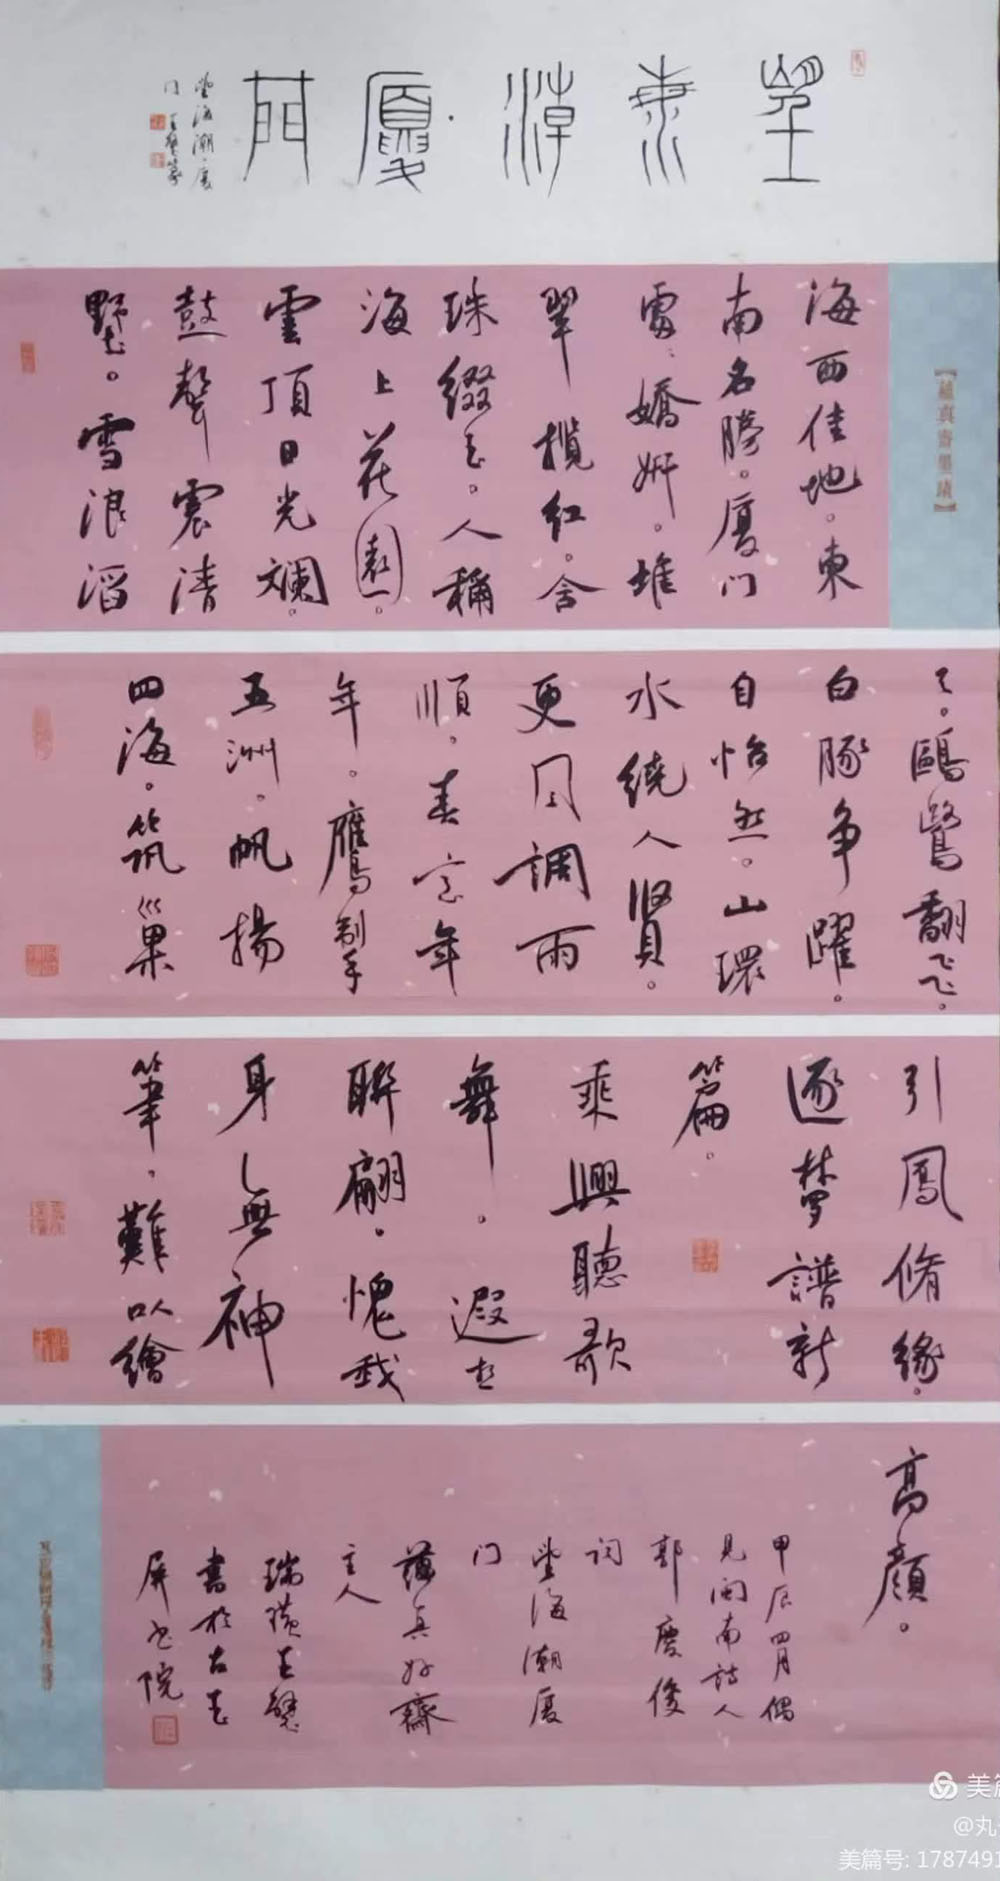 望海潮·廈門
望海潮·廈
门
海西佳地。東
南名勝。廈门
露嬌妍。堆
翠攬红。含
珠綴玉。人稱
海上花園。
雲頂日光斓。
鼓聲震清
野。雪浪滔
天。鷗鷺翻飞。
白豚争躍。
自怡然。山環
水绕人賢。
更风調雨
順。美意年
年。鷹制手
五洲。帆揚
四海。筑巢
引鳳脩缘。
逐梦譜新
篇。
乘興聽歌
舞。遐想
聯翩。愧我
身無神
筆。難以繪
高顏。
甲辰四月偶
見闽南詩人
郭慶俊
词
望海潮厦
门
蕴真好齋
主人
書於古
屏书院
【蘊真齋墨蹟】
美篇
@丸
美篇号: 1787491